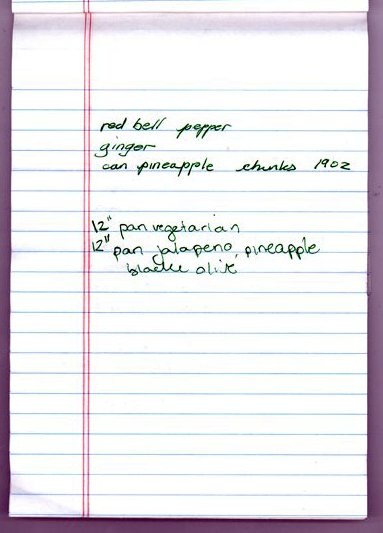 red bell pepper
ginger
can pineapple chunks 19oz
12" pan vegetarian
12" pan jalapeno, pineapple
black olive